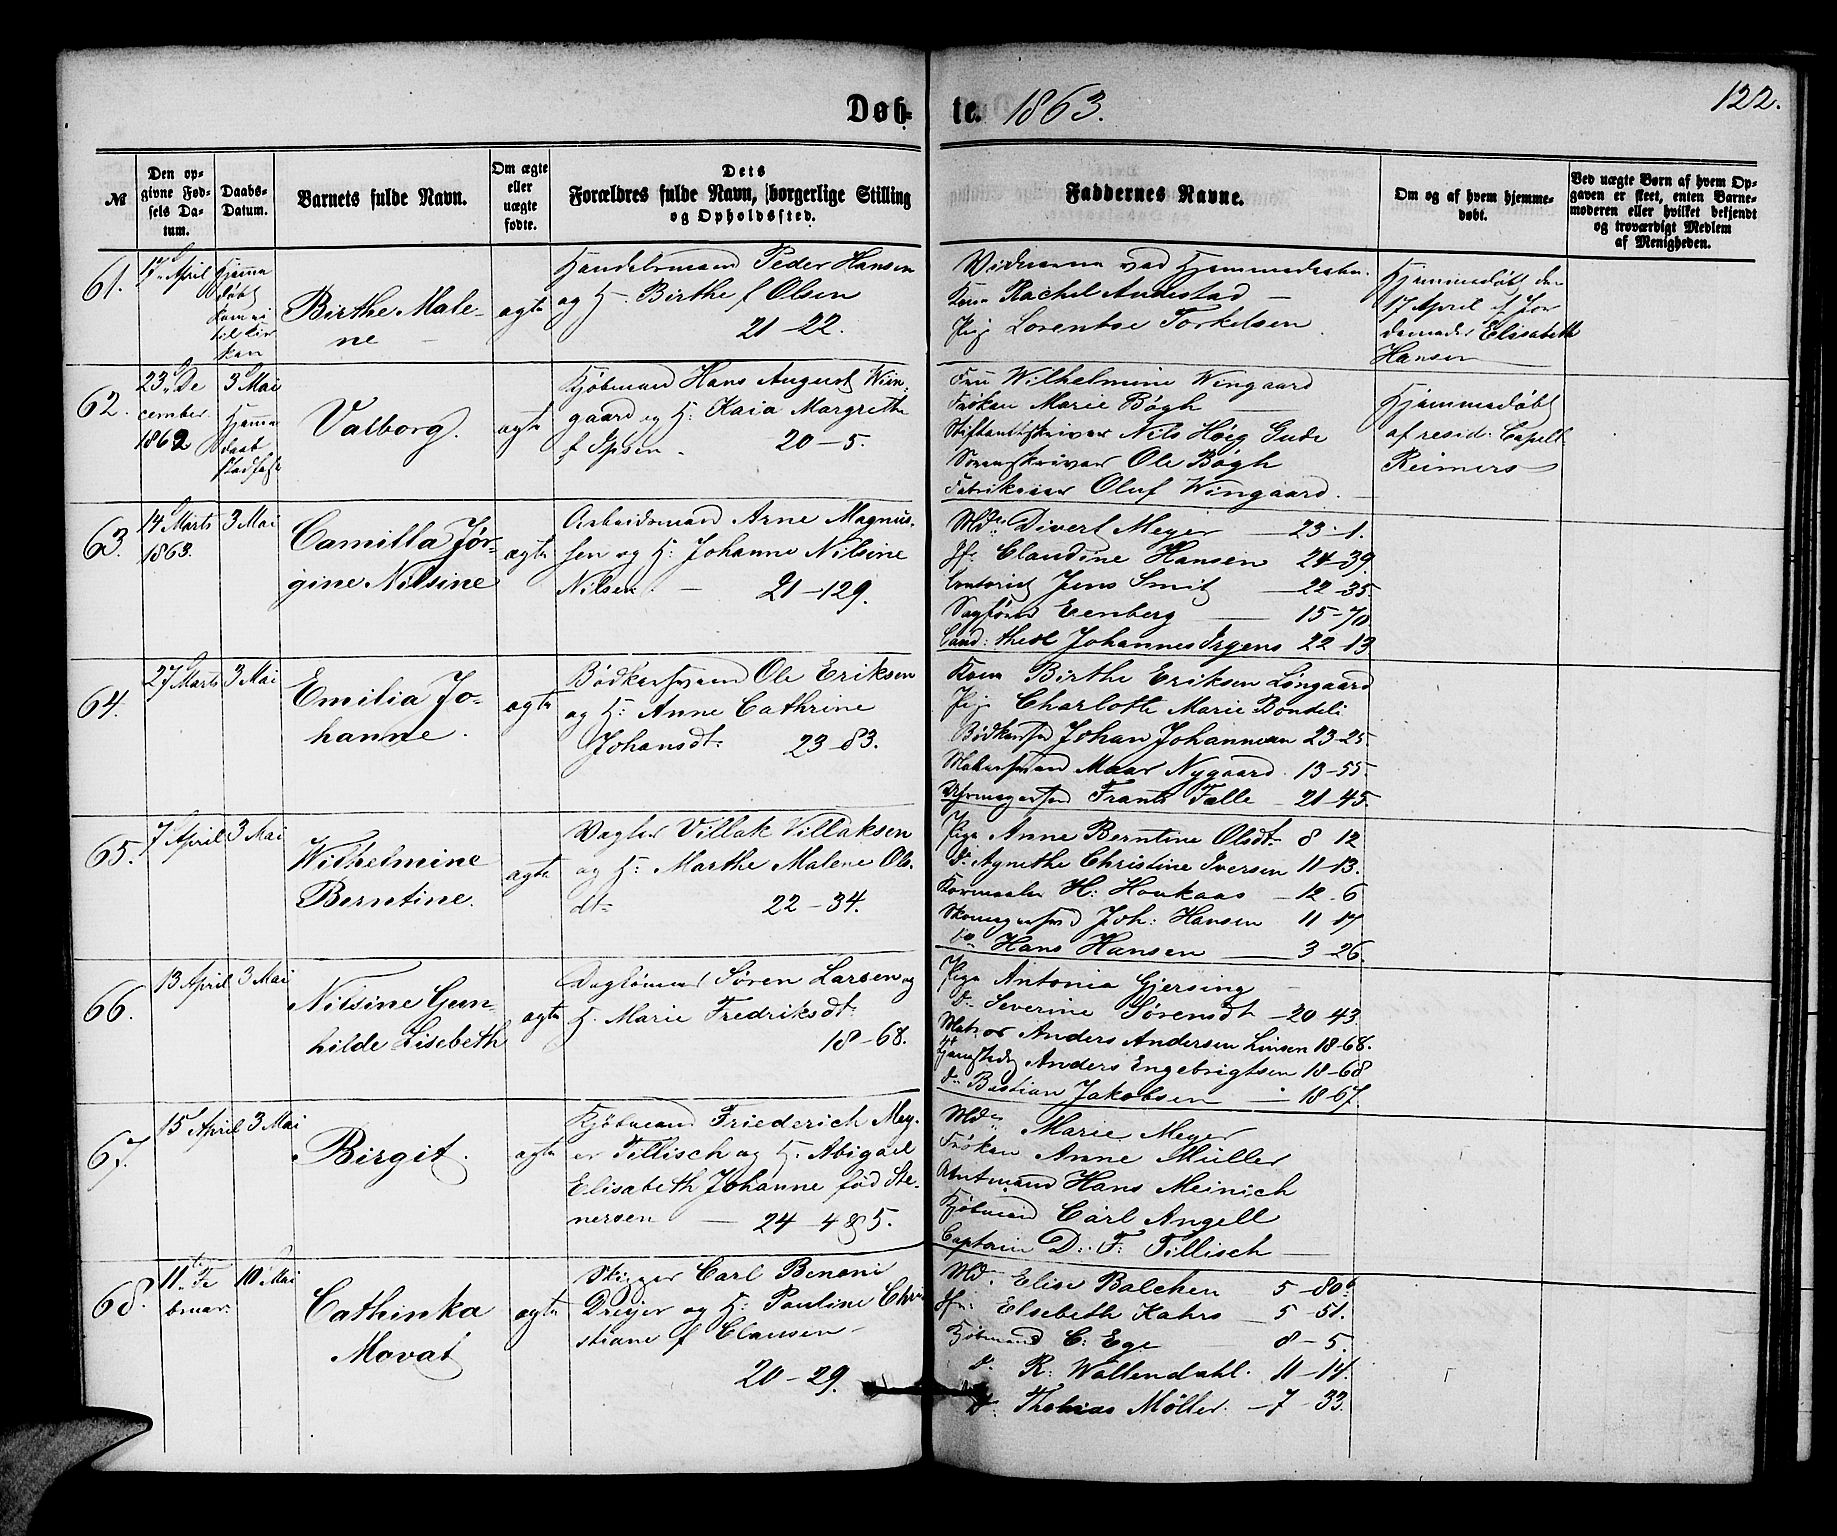 Døb-te. 1863.
122.
№
Den op-
givne Fød-
sels Da-
tum.
Daabs-
Datum.
Barnets fulde Navn.
Om ægte
eller
uægte
fødte.
Dets
Forældres fulde Navn, borgerlige Stilling
og Opholdssted.
Faddernes Navne.
Om og af hvem hjemme-
døbt.
Ved uægte Børn af hvem Op-
gaven er skeet, enten Barne-
moderen eller hvilket bekjendt
og troværdigt Medlem
af Menigheden.
61.
17 April
hjemme
døbt
kom ei
til kir
ken
Birthe Male-
ne
ægte
Handelsmand Peder Hansen
og H. Birthe f Olsen
21-22.
Vidnerne ved Hjemmedaaben
Kone Rachel Andestad
Pig. Lorentse Torkelsen
Hjemmedøbt den
17 April af Jor
demoder Elisabeth
Hansen
62.
23 De
cember
1862
3 Mai
Hjemme
daab
stadfæst
Valborg.
ægte
Kjøbmand Hans August Wiin-
gaard og H: Kaia Margrethe
f Ipsen.
20-5.
Fru Wilhelmine Wingaard
Frøken Marie Bøgh
Stiftamtskriver Nils Høeg Gude
Sorenskriver Ole Bøgh
Fabrikeier Oluf Wingaard.
Hjemmedøbt
af resid: Capell
Reimers
63.
14 Marts
1863.
3 Mai
Camilla Jør-
gine Nilsine
ægte
Arbeidsmand Arne Magnus-
sen og H: Johanne Nilsine
Nilsen
21-129.
Md. Divert Meyer 23-1.
Jf. Claudine Hansen 24-39
Contorist Jens Smit 22-35
Sagfører Eenberg 15-70
Cand: theol Johannes Irgens 22 13
64.
27 Marts
3 Mai
Emilia Jo-
hanne.
ægte
Bødkersvend Ole Eriksen
og H: Anne Cathrine
Johansdt.
23-83.
Kone Birthe Eriksen Løngaard
Pig. Charlotte Marie Bondeli
Bødkersv Johan Johannesen 23-25
Malersvend Maar Nygaard. 13-55.
Uhrmagersvd Frants Falle 21-45.
65.
7 April
3 Mai
Wilhelmine
Berntine.
ægte
Vægter Villak Villaksen
og H: Marthe Malene Ols
dt
22-34.
Pige Anne Berntine Olsdt 8 12
do Agnethe Christine Iversen 11-13.
Kornmaaler H: Houkaas 12 6
Skomagersvd Joh: Hansen 11 17
do Hans Hansen 3-26.
66.
13 April
3 Mai
Nilsine Gun-
hilde Lisebeth
ægte
Dagløner Søren Larsen og
H. Marie Fredriksdt
18-68.
Pige Antonia Gjersing
do Severine Sørensdt 20-43
Matros Anders Andersen Linsen 18-68.
Anders Engebrigtsen 18-68
do Bastian Jakobsen 18-67.
67.
15 April
3 Mai
Birgit.
ægte
Kjøbmand Friederich Mey-
er Tillisch og H. Abigael
Elisabeth Johanne fød Ste-
nersen
24-4&5.
Md. Marie Meyer
Frøken Anne Müller
Amtmand Hans Meinich
Kjøbmand Carl Angell
Captein D: F: Tillisch
68.
11 Fe
bruar.
10 Mai
Cathinka
Movat
ægte
Skipper Carl Benoni
Dreyer og H: Pauline Chri
stiane f Clausen
20-29.
Md. Elise Balchen 5-80b
Jfr: Elsebeth Kahrs 5-51.
Kjøbmand C: Ege 8-5.
do R: Wallendahl. 11-14.
do Thobias Møller. 7-33.